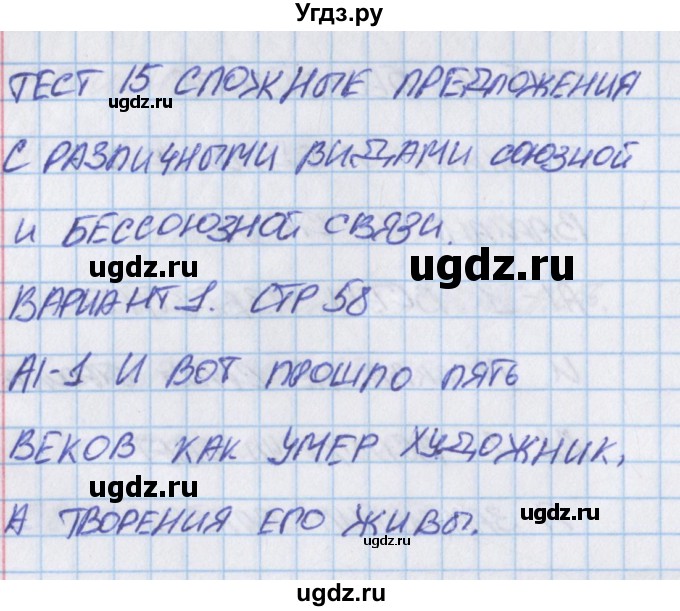 Угдз.ру
ТЕСТ 15 СЛОЖНЫЕ ПРЕДЛОЖЕНИЯ
ugdz.ru
С РАЗЛИЧНЫМИ ВИДАМИ СОЮЗНОЙ
ugdz.ru
И БЕССОЮЗНОЙ СВЯЗИ.
ugdz.ru ugdz.ru
ВАРИАНТ 1. СТР 58
А1-1 И ВОТ ПРОШЛО ПЯТЬ
ВЕКОВ КАК УМЕР ХУДОЖНИК,
ugdz.ru
А ТВОРЕНИЯ ЕГО ЖИВЫ.
ugdz.ru
ugdz.ru
ugdz.ru